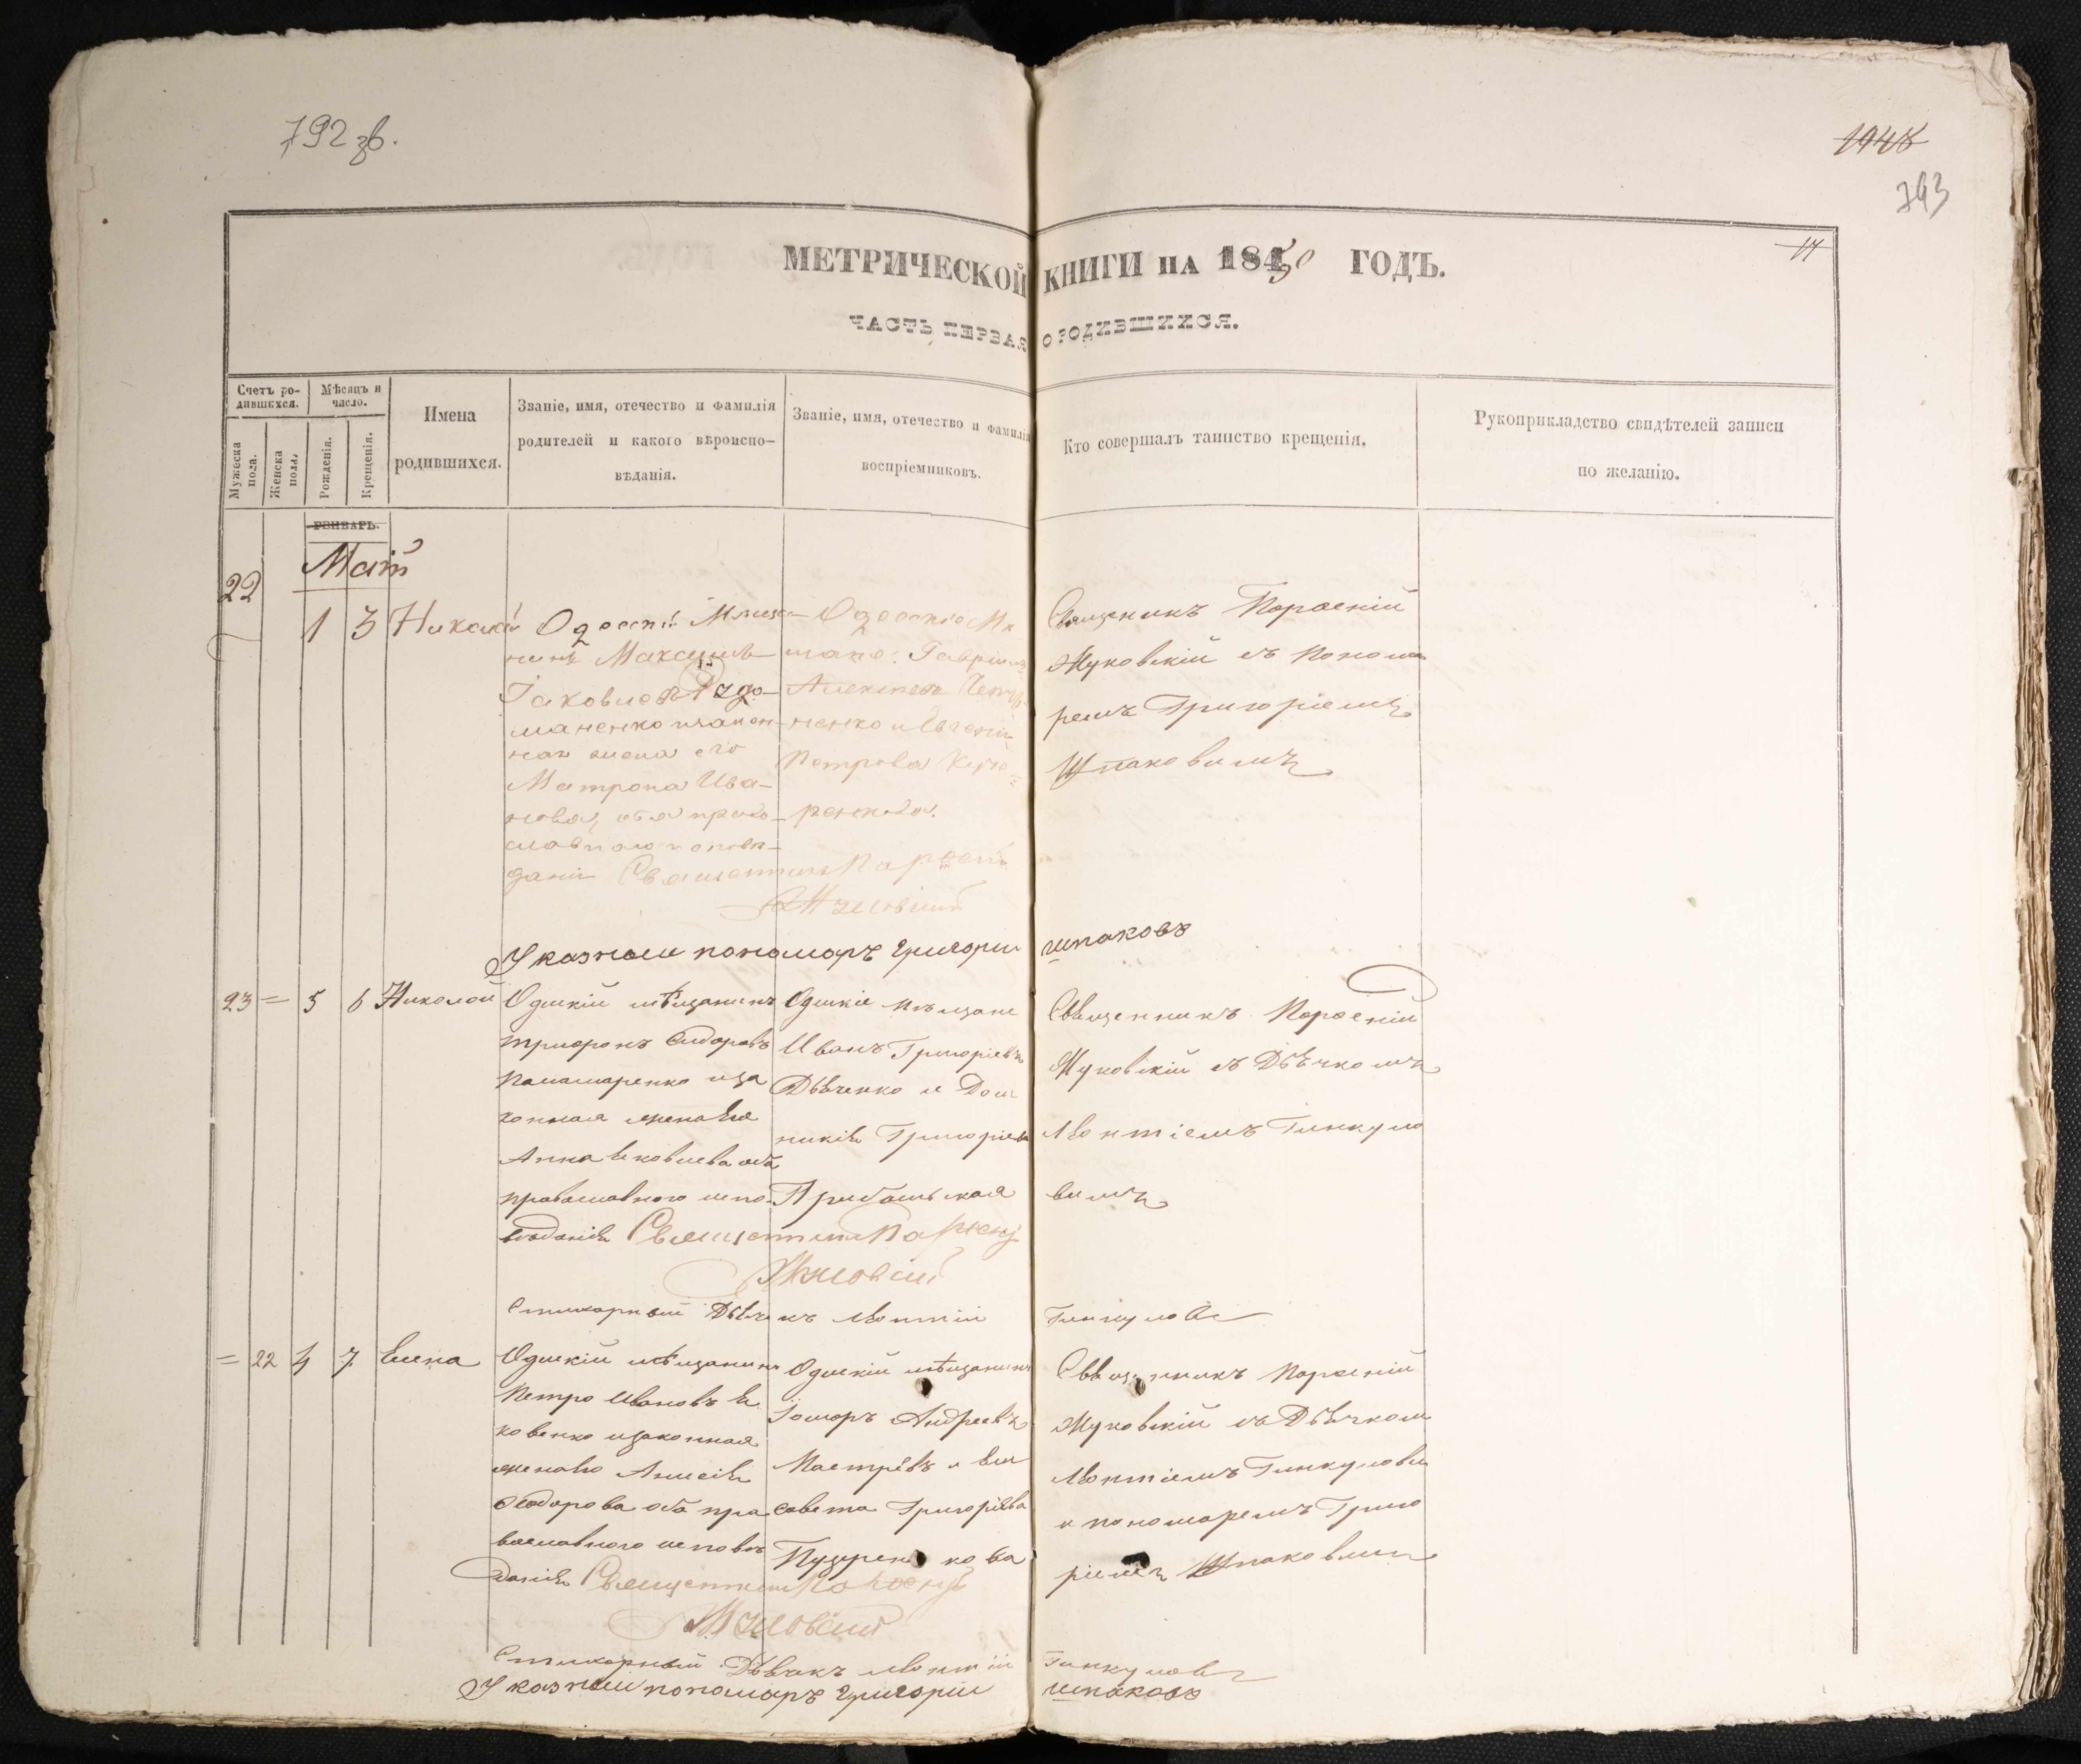 792 зв.
1948
793
17
МЕТРИЧЕСКОЙ КНИГИ НА 1850 ГОДЪ.
ЧАСТЬ ПЕРВАЯ О РОДИВШИХСЯ.
Счетъ ро-
дившихся.
Мужеска
пола.
Женска
пола.
Мѣсяцъ и
число.
Рожденія.
Крещенія.
Имена
родившихся.
Званіе, имя, отечество и фамилія
родителей и какого вѣроиспо-
вѣданія.
Званіе, имя, отечество и фамилія
воспріемниковъ.
Кто совершалъ таинство крещенія.
Рукоприкладство свидѣтелей записи
по желанію.
ЯНВАРЬ.
Маій
22
1 3
Одесскій Мѣща-
нинъ Максимъ
Іаковлевъ
маненко изакон-
ная жена его
Матрона Ива-
нова, оба право-
славнаго исповѣ-
данія Священникъ Парѳеній
Жуковскій
Гавріилъ
Алексѣевъ
ненко и Евгенія
Петрова
Священникъ Парѳеній
Жуковскій съ Понома
ремъ Григоріемъ
Шпаковымъ
Указный пономарь Григорій Шпаковъ
23 = 5 6 Николай
Одескій мѣщанинъ
Трифонъ Сидоровъ
Панамаренко иза
конная жена Его
Анна Яковлева оба
православнаго испо
вѣданія Священникъ Парѳеній
Жуковскій
Одескіе мѣщане
Иванъ Григорьевъ
Дьяченко и Дом
никія Григорьева
Священникъ Парѳеній
Жуковскій съ Дьячкомъ
Леонтіемъ Гинкуло
вымъ
Стихарный Дьячекъ Леонтій Гинкуловъ
= 22 4 7 Елена
Одескій мѣщанинъ
Петро Ивановъ Я
ковенко изаконная
жена его Анисія
Ѳеодорова оба пра
вославнаго исповѣ
данія Священникъ Парѳеній
Жуковскій
Одескій мѣщанинъ
Андреевъ
и Ели
савета Григорьева
Священникъ Парѳеній
Жуковскій съ Дьячком
Леонтіемъ Гинкуловым
и пономаремъ Григо
ріемъ Шпаковымъ
Стихарный Дьячекъ Леонтій Гинкуловъ
Указный пономарь Григорій Шпаковъ